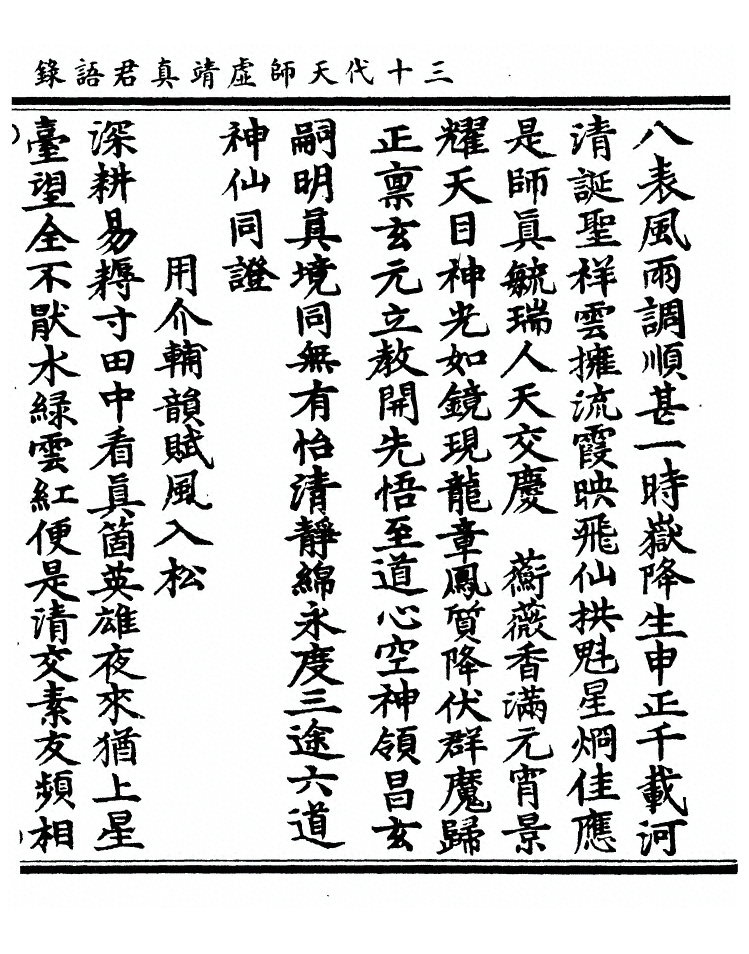 三十代天師虛靖真君語錄
八表風雨調順甚一時嶽降生申正千載河
清誕聖祥雲擁流霞映飛仙拱魁星烱佳應
是師眞毓瑞人天交慶　蘅薇香滿元宵景
耀天目神光如鏡現龍章鳳質降伏群魔歸
正禀玄元立教開先悟至道心空神領昌玄
嗣明眞境同無有怡清靜綿永度三途六道
神仙同證
用介輔韻賦風入松
深耕易耨寸田中看眞箇英雄夜來猶上星
臺望全不猒水緑雲紅便是清交素友頻相